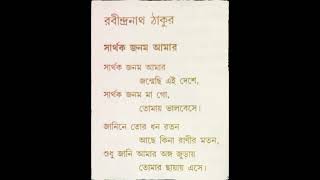 রবীন্দ্রনাথ ঠাকুর
সার্থক জনম আমার
সার্থক জনম আমার
জন্মেছি এই দেশে,
সার্থক জনম মা গো,
তোমায় ভালবেসে।
জানিনে তোর ধন রতন
আছে কিনা রাণীর মতন,
শুধু জানি আমার অঙ্গ জুড়ায়
তোমার ছায়ায় এসে।